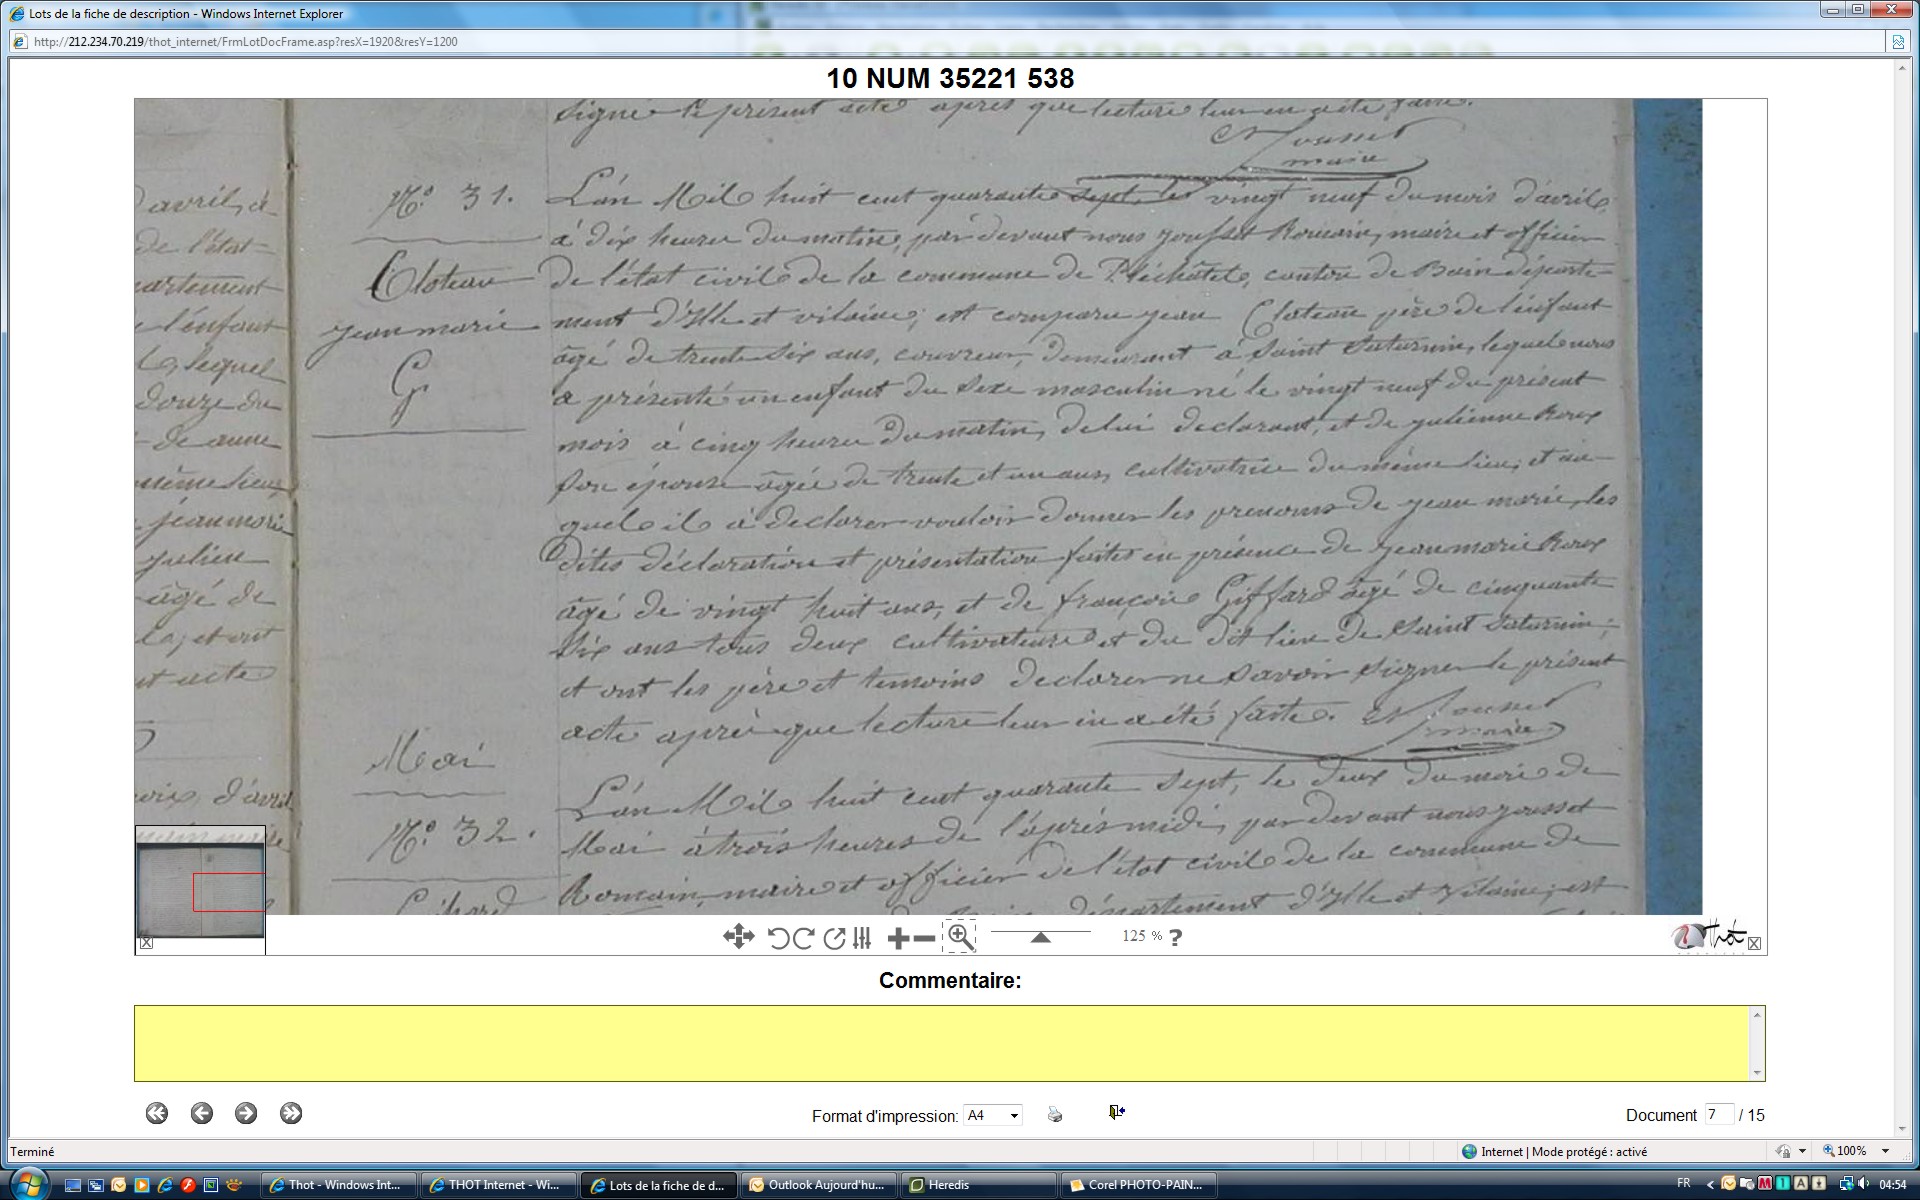 Lots de la fiche de description - Windows Internet Explorer
http://212.234.70.219/thot_internet/FrmLotDocFrame.asp?resX=1920&resY=1200
10 NUM 35221 538
signé le présent acte après que lecture leur en a été faite.
Jousset
maire
d'avril, à
de l'état
partement
l'enfant
lequel
douze du
de anne
même lieu
jean marie
julien
âgé de
et ont
acte
mois d'avril
N.o 31.
Cloteau
jean marie
G
L'an Mil huit cent quarante sept, le vingt neuf du mois d'avril
à dix heures du matin, par devant nous jousset Romain, maire et officier
de l'état civil de la commune de Pléchâtel, canton de Bain départe-
ment d'Ille et vilaine; est comparu jean Cloteau père de l'enfant
âgé de trente six ans, couvreur, demeurant à Saint Saturnin, lequel nous
a présenté un enfant du sexe masculin né le vingt neuf du présent
mois à cinq heures du matin, de lui declarant, et de julienne Roux
son épouse âgée de trente et un ans, cultivatrice du même lieu; et au-
quel il a declarer vouloir donner les prenoms de jean marie, les
dites déclaration et présentation faites en présence de jean marie Roux
âgé de vingt huit ans, et de françois Giffard âgé de cinquante
six ans tous deux cultivateurs et du dit lieu de Saint Saturnin;
et ont les père et temoins declarer ne savoir signer le présent
acte après que lecture leur en a été faite. Jousset
maire
Mai
N.o 32.
L'an Mil huit cent quarante sept, le deux du mois de
Mai à trois heures de l'après midi, par devant nous jousset
Romain, maire et officier de l'état civil de la commune de
département d'Ille et Vilaine; est
125 % ?
Thot
Commentaire:
Format d'impression: A4
Document 7 / 15
Terminé
Internet | Mode protégé : activé
100%
Thot - Windows Int...
THOT Internet - Wi...
Lots de la fiche de d...
Outlook Aujourd'hu...
Heredis
Corel PHOTO-PAIN...
FR
04:54